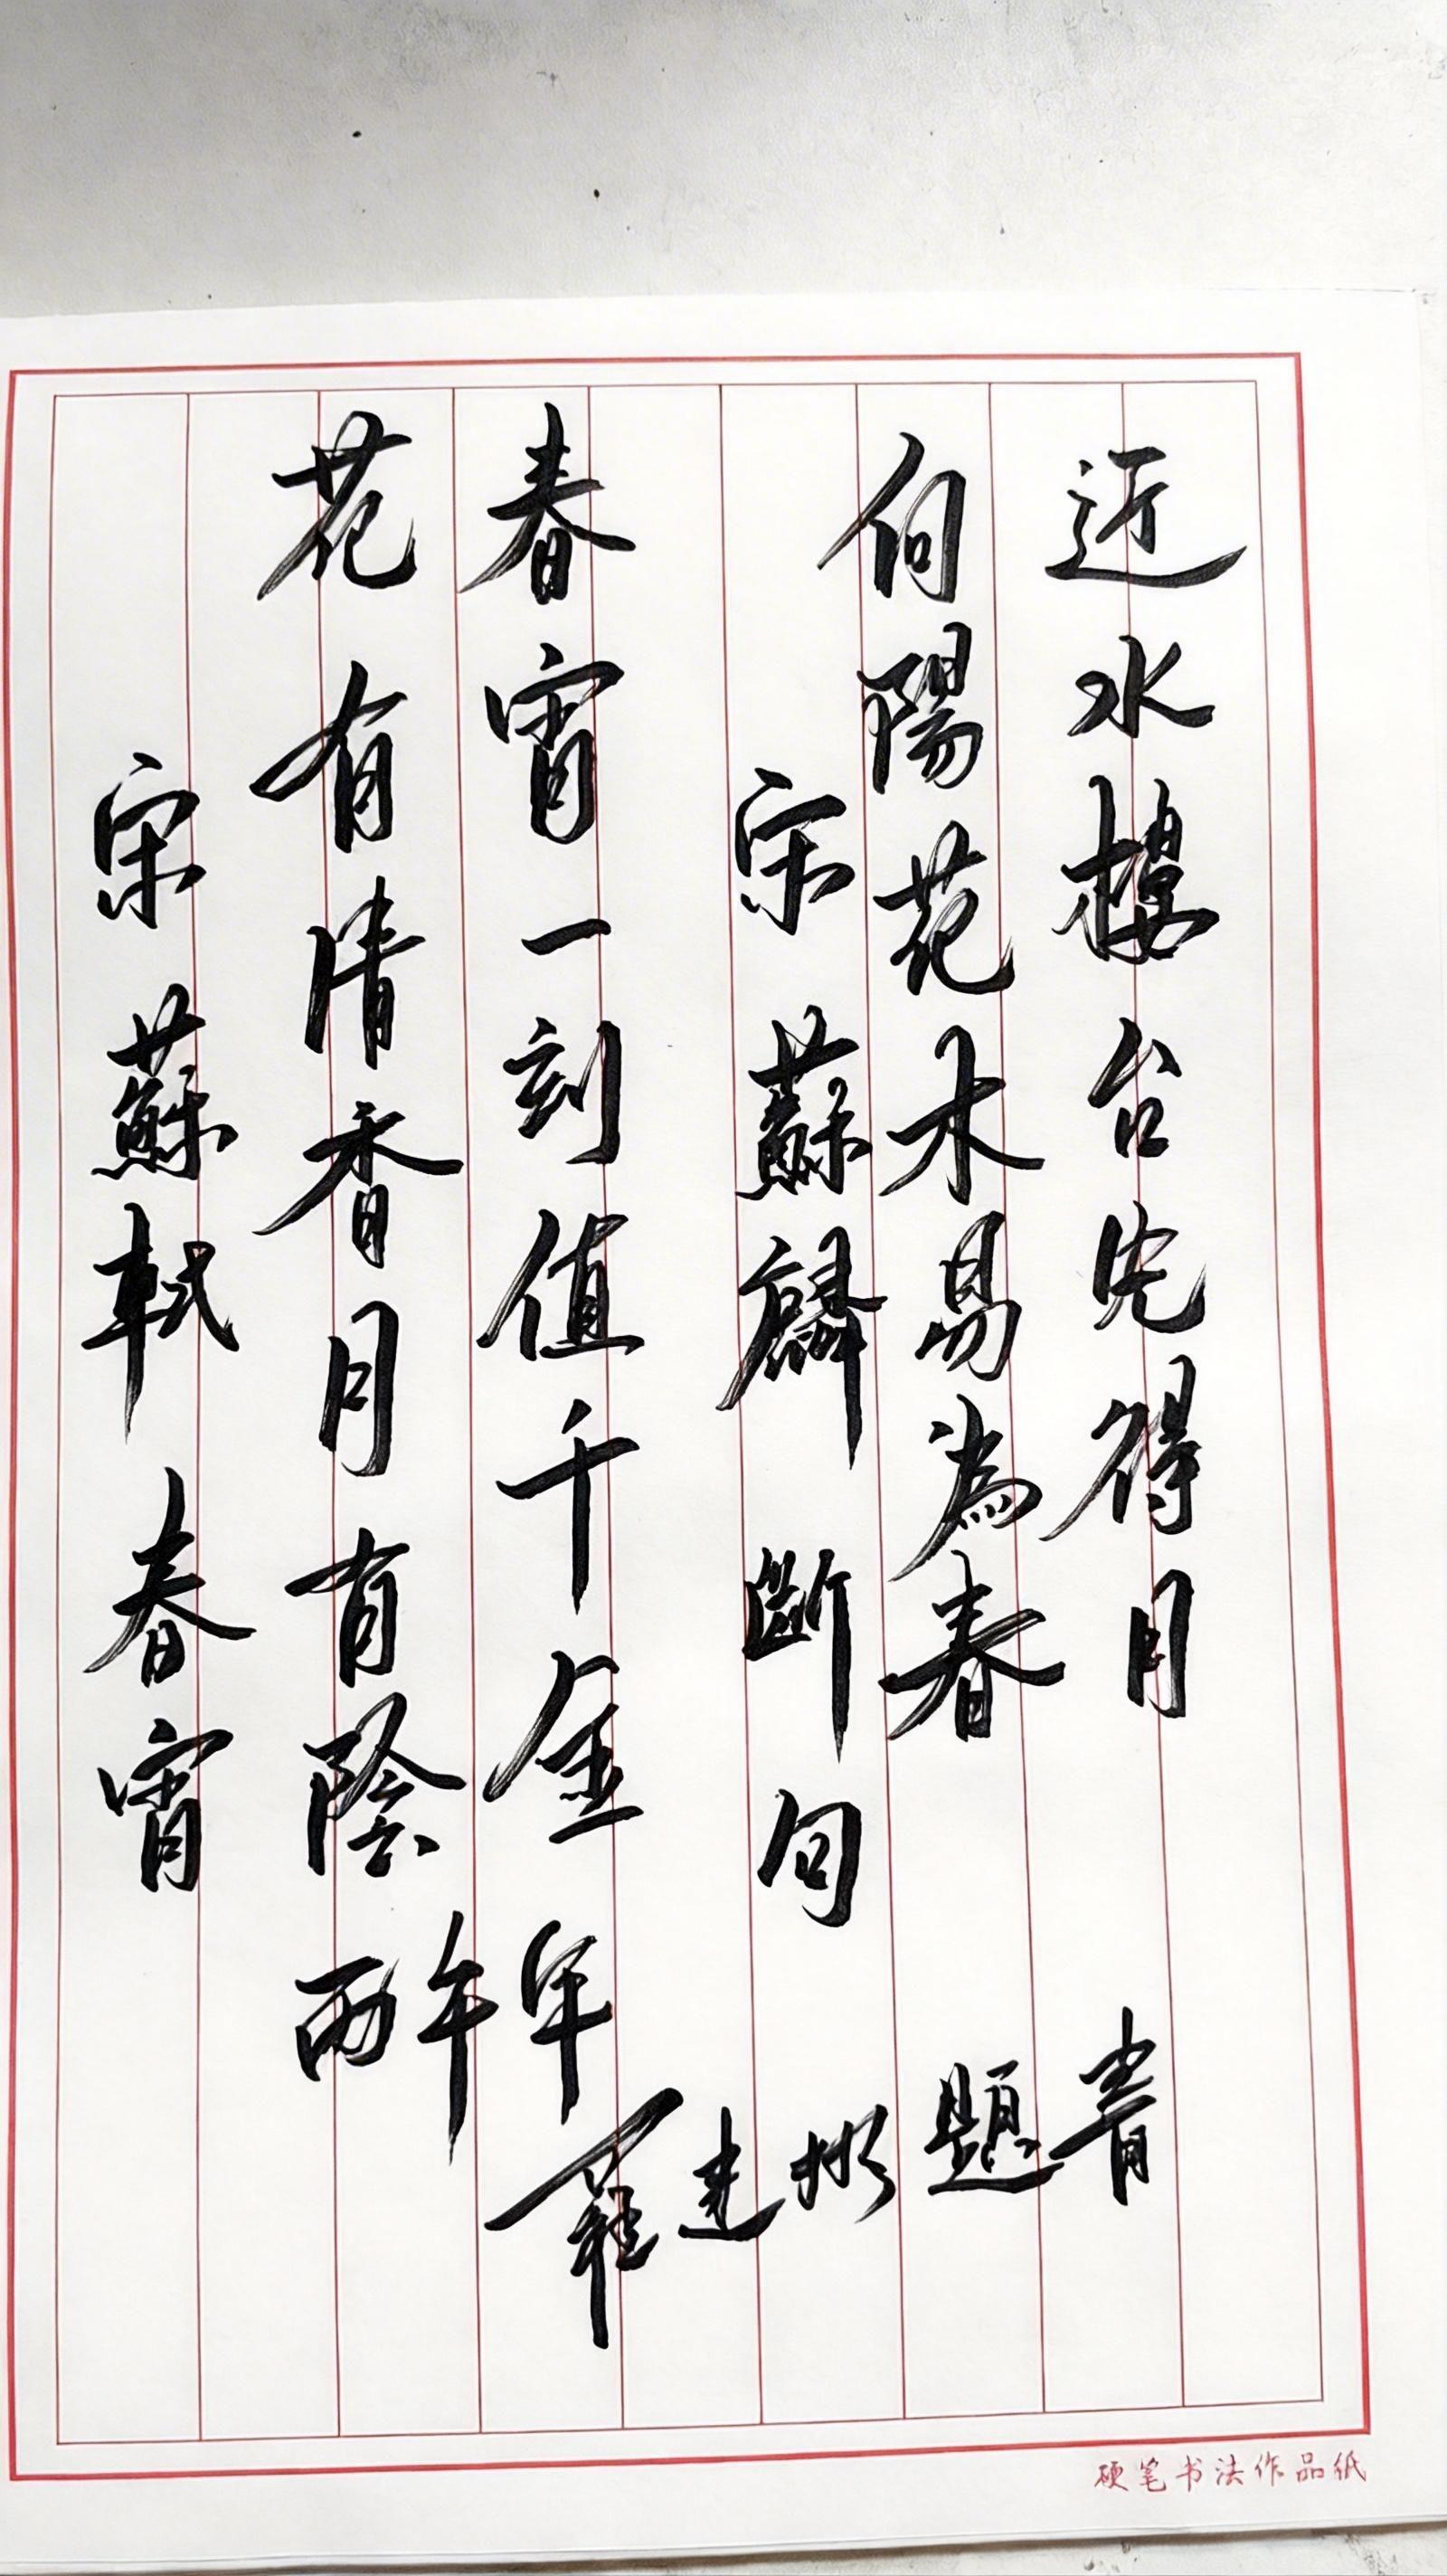 近水樓台先得月
向陽花木易為春
宋 蘇麟 斷句
春宵一刻值千金
花有清香月有陰
宋 蘇軾 春宵
丙午年 羅建彬 題
硬笔书法作品纸